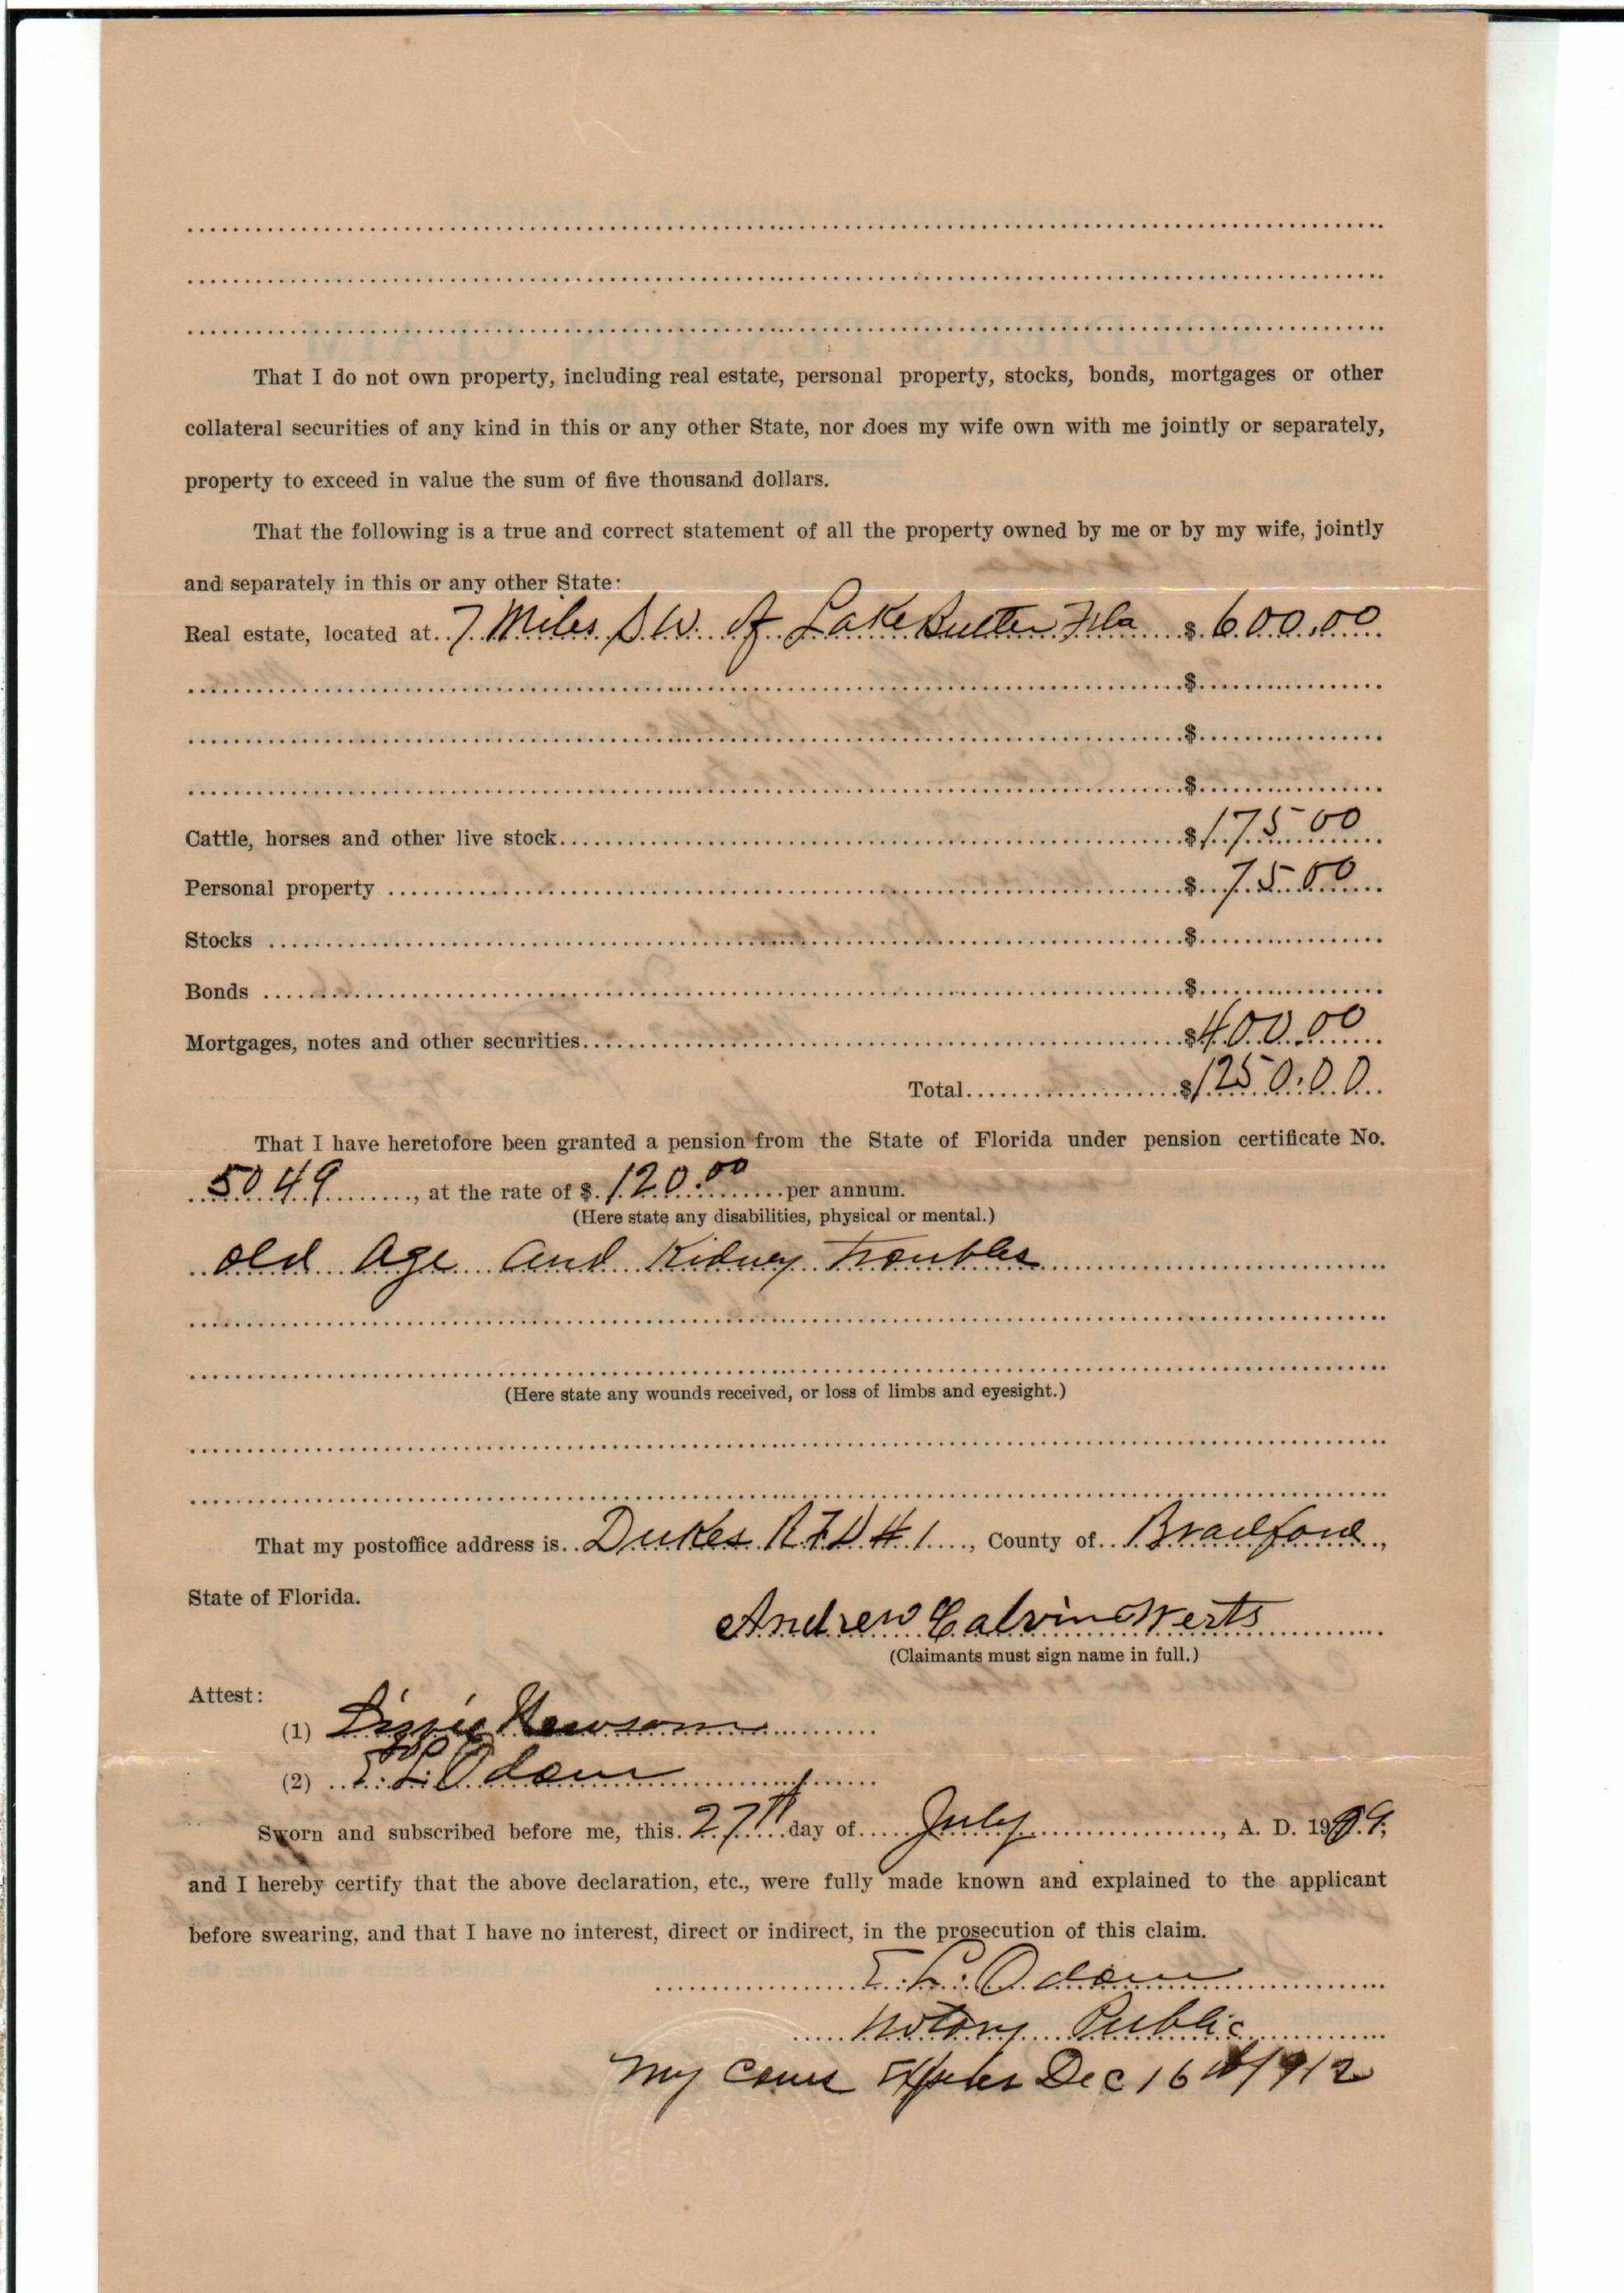 That I do not own property, including real estate, personal property, stocks, bonds, mortgages or other
collateral securities of any kind in this or any other State, nor does my wife own with me jointly or separately,
property to exceed in value the sum of five thousand dollars.
That the following is a true and correct statement of all the property owned by me or by my wife, jointly
and separately in this or any other State:
Real estate, located at 7 Miles S.W. of Lake Butler Fla $ 600.00
$
$
$
Cattle, horses and other live stock $ 175 00
Personal property $ 75 00
Stocks $
Bonds $
Mortgages, notes and other securities $ 400.00
Total $ 1250.00
That I have heretofore been granted a pension from the State of Florida under pension certificate No.
5049, at the rate of $ 120.00 per annum.
(Here state any disabilities, physical or mental.)
old Age and Kidney Troubles
(Here state any wounds received, or loss of limbs and eyesight.)
That my postoffice address is Dukes R.F.D. # 1, County of Bradford,
State of Florida.
Andrew Calvin Werts
(Claimants must sign name in full.)
Attest:
(1) Lizzie Newsom
(2) E. L. Odom
Sworn and subscribed before me, this 27th day of July, A. D. 1909,
and I hereby certify that the above declaration, etc., were fully made known and explained to the applicant
before swearing, and that I have no interest, direct or indirect, in the prosecution of this claim.
E. L. Odom
Notary Public
My Dec 16th 1912